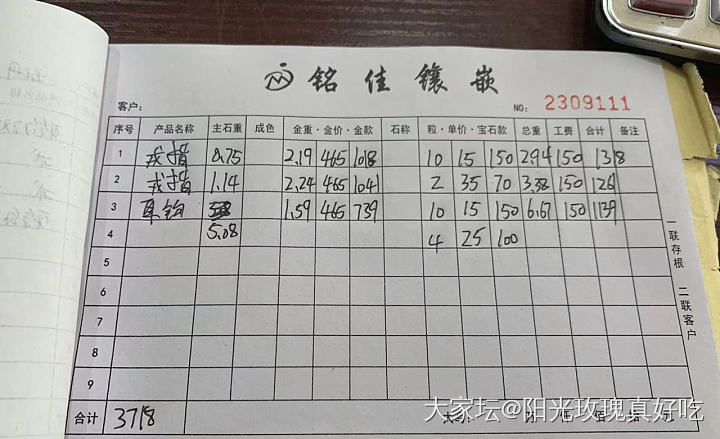 铭佳镶嵌
客户： NO: 2309111
序号 产品名称 主石重 成色 金重·金价·金款 石称 粒·单价·宝石款 总重 工费 合计 备注
1 戒指 0.75 2.19 465 1018 10 15 150 2.94 150 1318
2 戒指 1.14 2.24 465 1041 2 35 70 3.38 150 1261
3 耳钩 1.59 465 739 10 15 150 6.67 150 1139
4 5.08 4 25 100
5
6
7
8
9
合计 3718
一联存根 二联客户
大家坛@阳光玫瑰真好吃